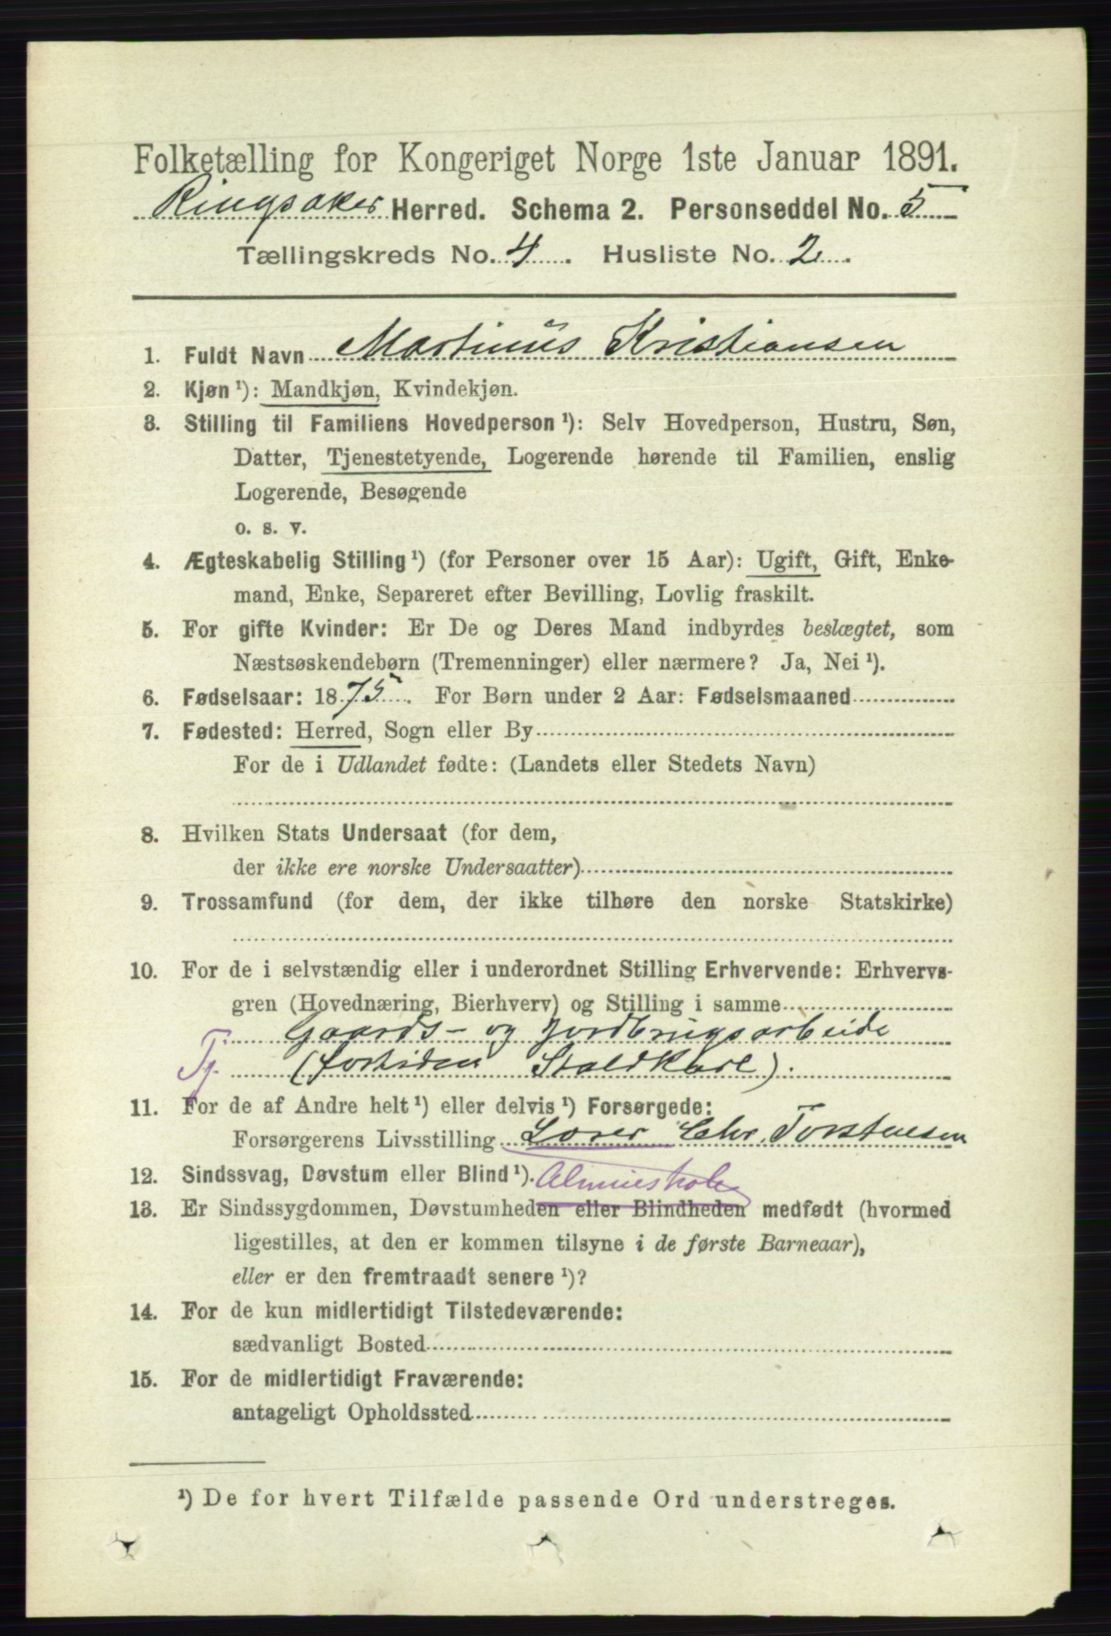 Folketælling for Kongeriget Norge 1ste Januar 1891.
Ringsaker Herred. Schema 2. Personseddel No. 5
Tællingskreds No. 4. Husliste No. 2.
1. Fuldt Navn Martinus Kristiansen
2. Kjøn ¹): Mandkjøn, Kvindekjøn.
3. Stilling til Familiens Hovedperson ¹): Selv Hovedperson, Hustru, Søn,
Datter, Tjenestetyende, Logerende hørende til Familien, enslig
Logerende, Besøgende
o. s. v.
4. Ægteskabelig Stilling ¹) (for Personer over 15 Aar): Ugift, Gift, Enke-
mand, Enke, Separeret efter Bevilling, Lovlig fraskilt.
5. For gifte Kvinder: Er De og Deres Mand indbyrdes beslægtet, som
Næstsøskendebørn (Tremenninger) eller nærmere? Ja, Nei ¹).
6. Fødselsaar: 1875. For Børn under 2 Aar: Fødselsmaaned
7. Fødested: Herred, Sogn eller By
For de i Udlandet fødte: (Landets eller Stedets Navn)
8. Hvilken Stats Undersaat (for dem,
der ikke ere norske Undersaatter)
9. Trossamfund (for dem, der ikke tilhøre den norske Statskirke)
10. For de i selvstændig eller i underordnet Stilling Erhvervende: Erhvervs-
gren (Hovednæring, Bierhverv) og Stilling i samme
Gaards- og Jordbrugsarbeide
Tj. (fortiden Staldkarl).
11. For de af Andre helt ¹) eller delvis ¹) Forsørgede:
Forsørgerens Livsstilling Chr. Torstensen
12. Sindssvag, Døvstum eller Blind ¹).
13. Er Sindssygdommen, Døvstumheden eller Blindheden medfødt (hvormed
ligestilles, at den er kommen tilsyne i de første Barneaar),
eller er den fremtraadt senere ¹)?
14. For de kun midlertidigt Tilstedeværende:
sædvanligt Bosted
15. For de midlertidigt Fraværende:
antageligt Opholdssted
¹) De for hvert Tilfælde passende Ord understreges.